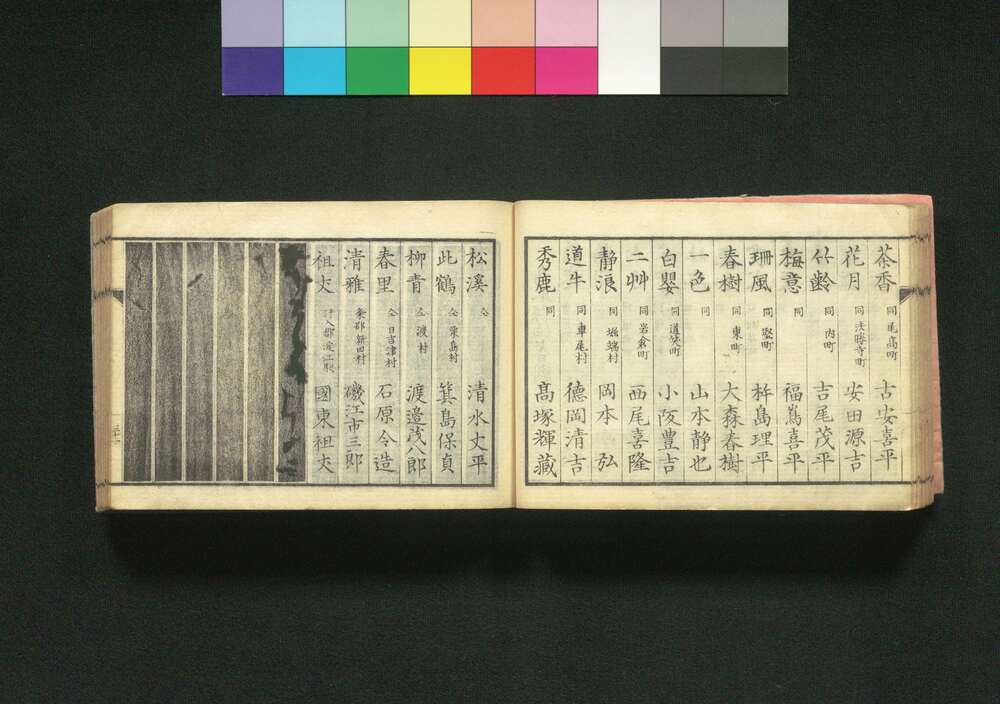 茶香 同尾高町 古安喜平
花月 同法勝寺町 安田源吉
竹齢 同内町 吉尾茂平
梅意 同 福嶌喜平
珊風 同竪町 杵島理平
春樹 同東町 大森春樹
一色 同 山本静也
白嬰 同道笑町 小阪豊吉
二艸 同岩倉町 西尾喜隆
静浪 同堀端村 岡本弘
道牛 同車尾村 德岡清吉
秀鹿 同 髙塚輝藏
松溪 仝 清水丈平
此鶴 仝粟島村 箕島保貞
柳青 仝渡村 渡邉茂八郎
春里 仝日吉津村 石原令造
清雅 新田村 磯江市三郎
祖丈 國東祖丈